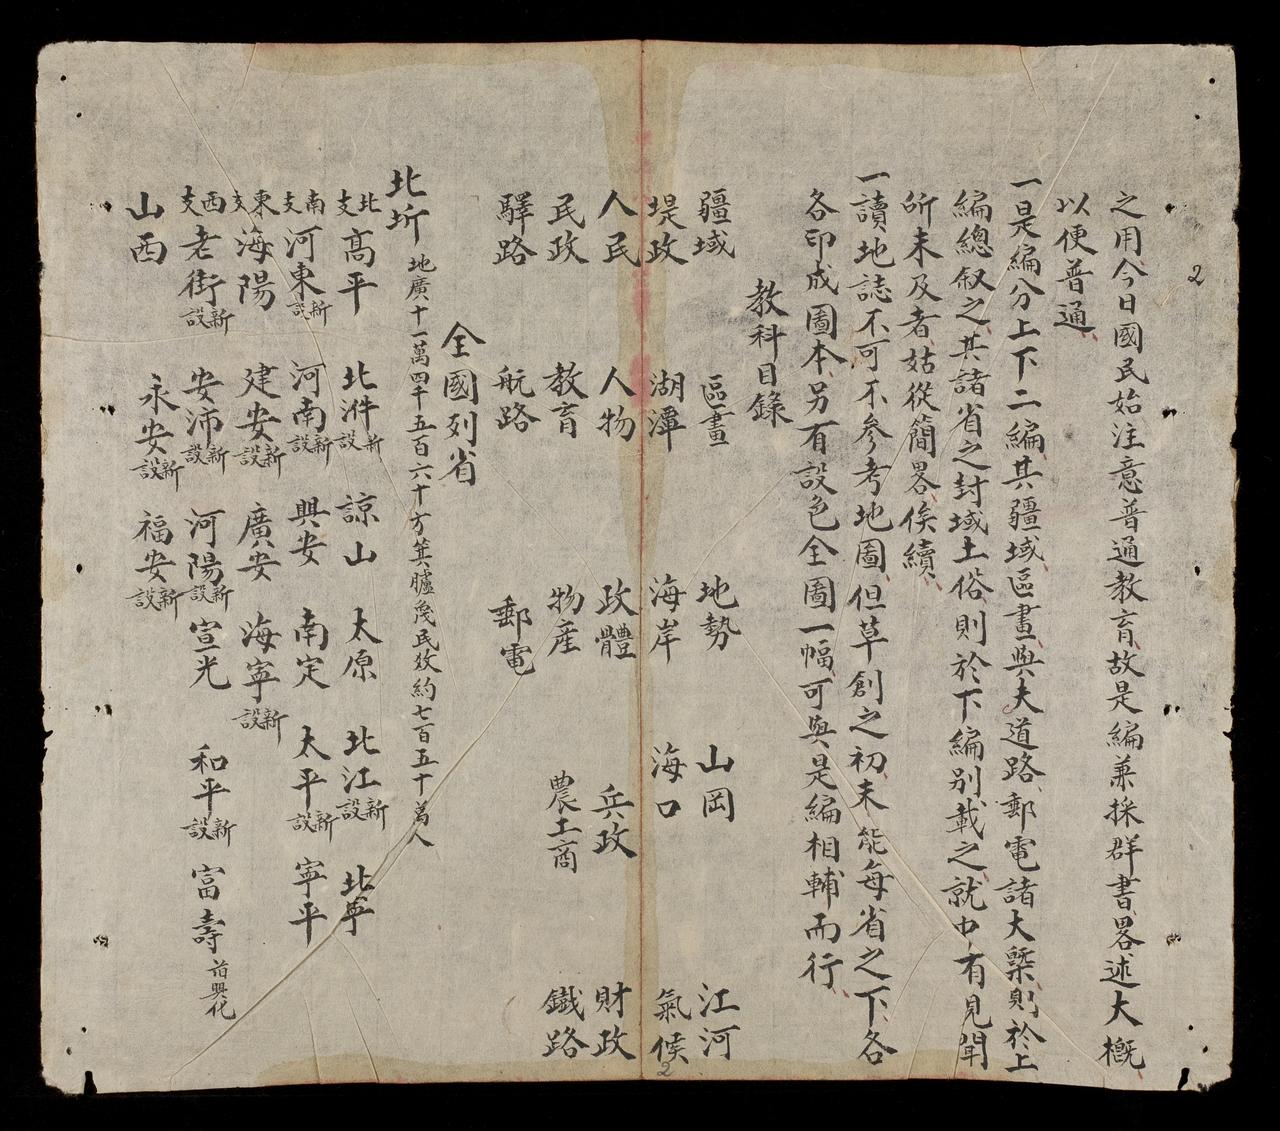 之用今日國民始注意普通教育故是編兼採群書畧述大概
以便普通
一是編分上下二編其疆域區畫與夫道路郵電諸大槩則於上
編總叙之其諸省之封域土俗則於下編别載之就中有見聞
所未及者姑從簡畧俟續
一讀地誌不可不參考地圖但草創之初未能每省之下各
各印成圖本另有設色全圖一幅可與是編相輔而行
教科目錄
疆域 區畫 地勢 山岡 江河
堤政 湖潭 海岸 海口 氣候
人民 人物 政體 兵政 財政
民政 教育 物産 農工商 鐵路
驛路 航路 郵電
全國列省
北圻 地廣十一萬四千五百六十方箕臚幾民数約七百五十萬人
北支 高平 北𣴓新設 諒山 太原 北江新設 北寧
南支 河東新設 河南新設 興安 南定 太平新設 寧平
東支 海陽 建安新設 廣安 海寧新設
西支 老街新設 安沛新設 河陽新設 宣光 和平新設 富壽 舊興化
山西 永安新設 福安新設
2
2